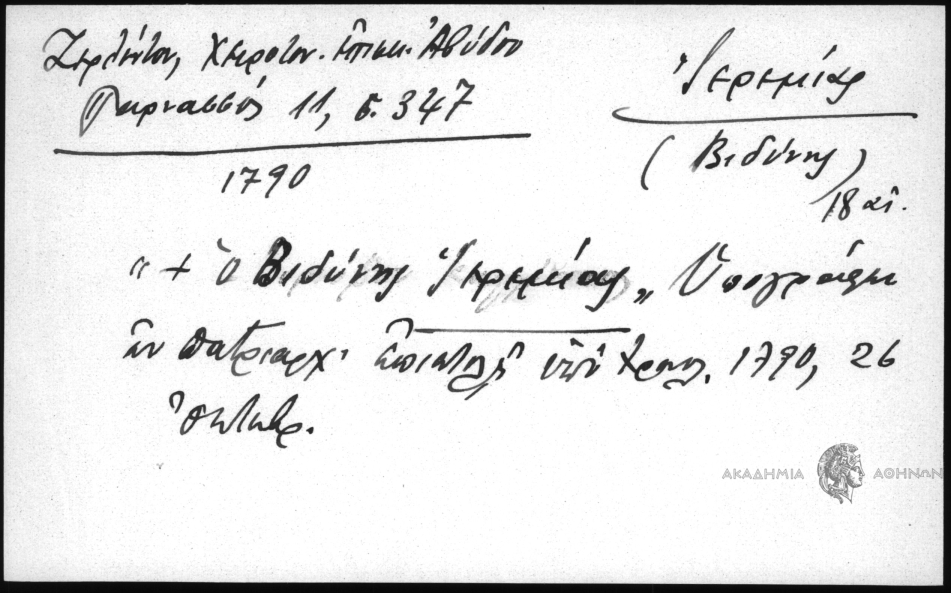 Ζερλέντου, Χειροτον. Ἐπισκ. Ἀβύδου
Παρνασσός 11, σ. 347
1790
Ἱερεμίας
(Βιδύνης)
18 αἰ.
"+ ὁ Βιδύνης Ἱερεμίας„ Ὑπογράφει
ἐν πατριαρχ. ἐπιστολῇ ὑπὸ χρονολ. 1790, 26
Ὀκτωβρ.
ΑΚΑΔΗΜΙΑ ΑΘΗΝΩΝ